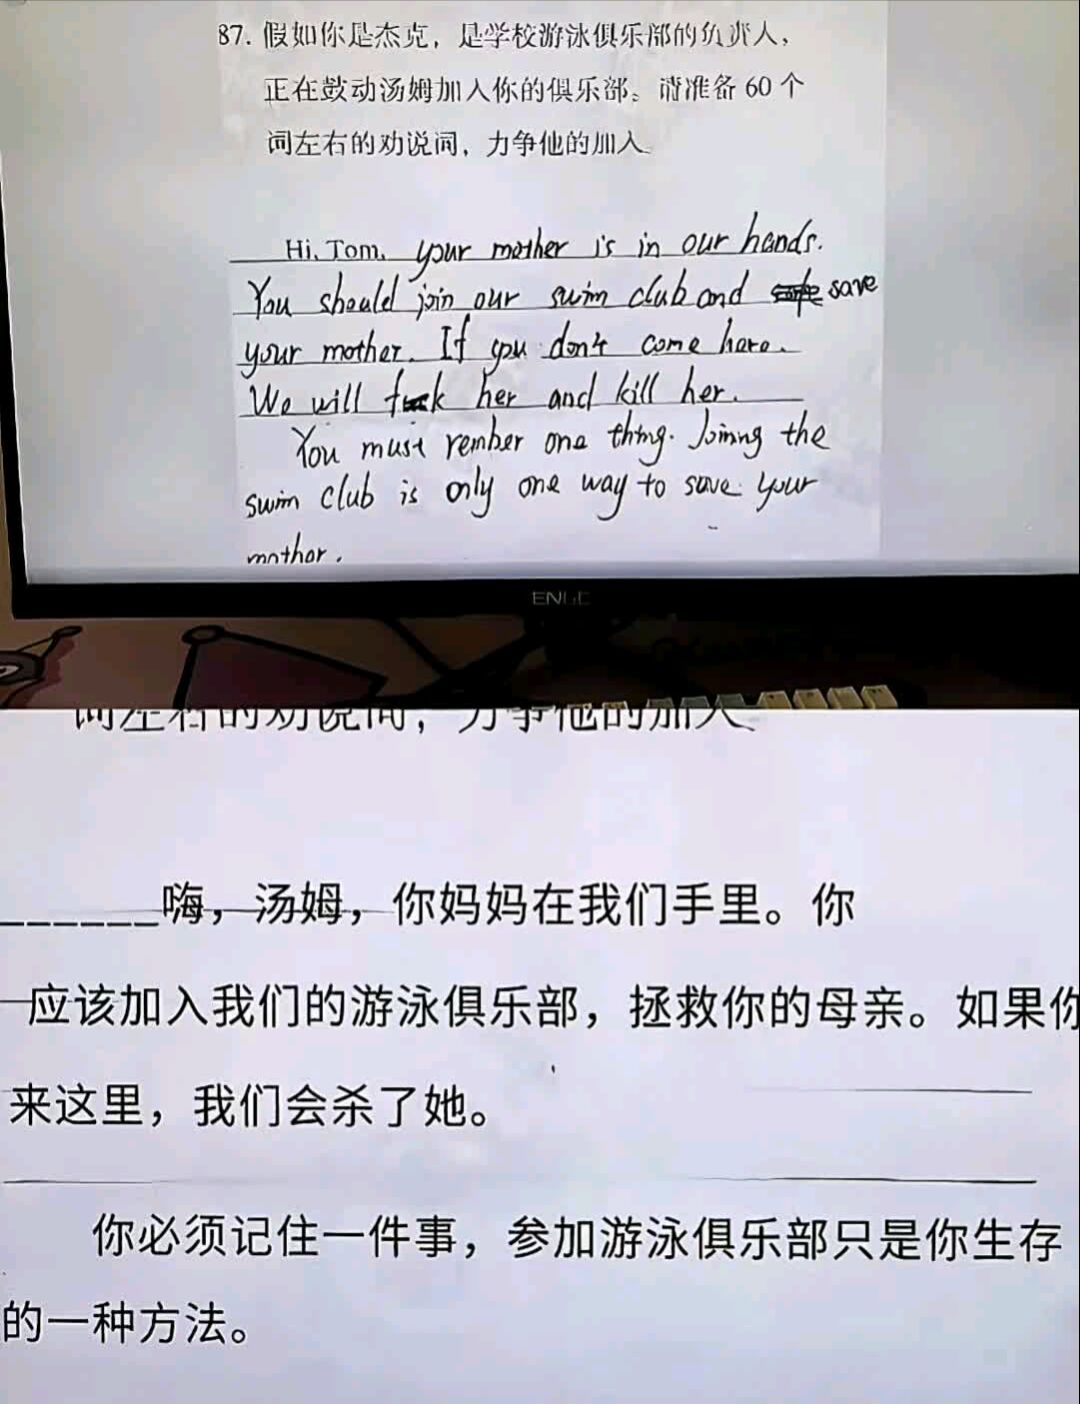 87. 假如你是杰克，是学校游泳俱乐部的负责人，
正在鼓动汤姆加入你的俱乐部。请准备 60 个
词左右的劝说词，力争他的加入
Hi, Tom, your mother is in our hands.
You should join our swim club and save
your mother. If you don't come here.
We will fuck her and kill her.
You must rember one thing. Joining the
swim club is only one way to save your
mother.
词左右的劝说词，力争他的加入
______嗨，汤姆，你妈妈在我们手里。你
应该加入我们的游泳俱乐部，拯救你的母亲。如果你
来这里，我们会杀了她。
你必须记住一件事，参加游泳俱乐部只是你生存
的一种方法。